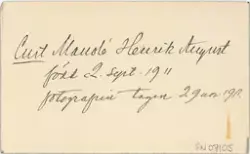 Curt Manolo Henrik August
född 2. sept. 1911
fotografiet tagen 29 nov 191